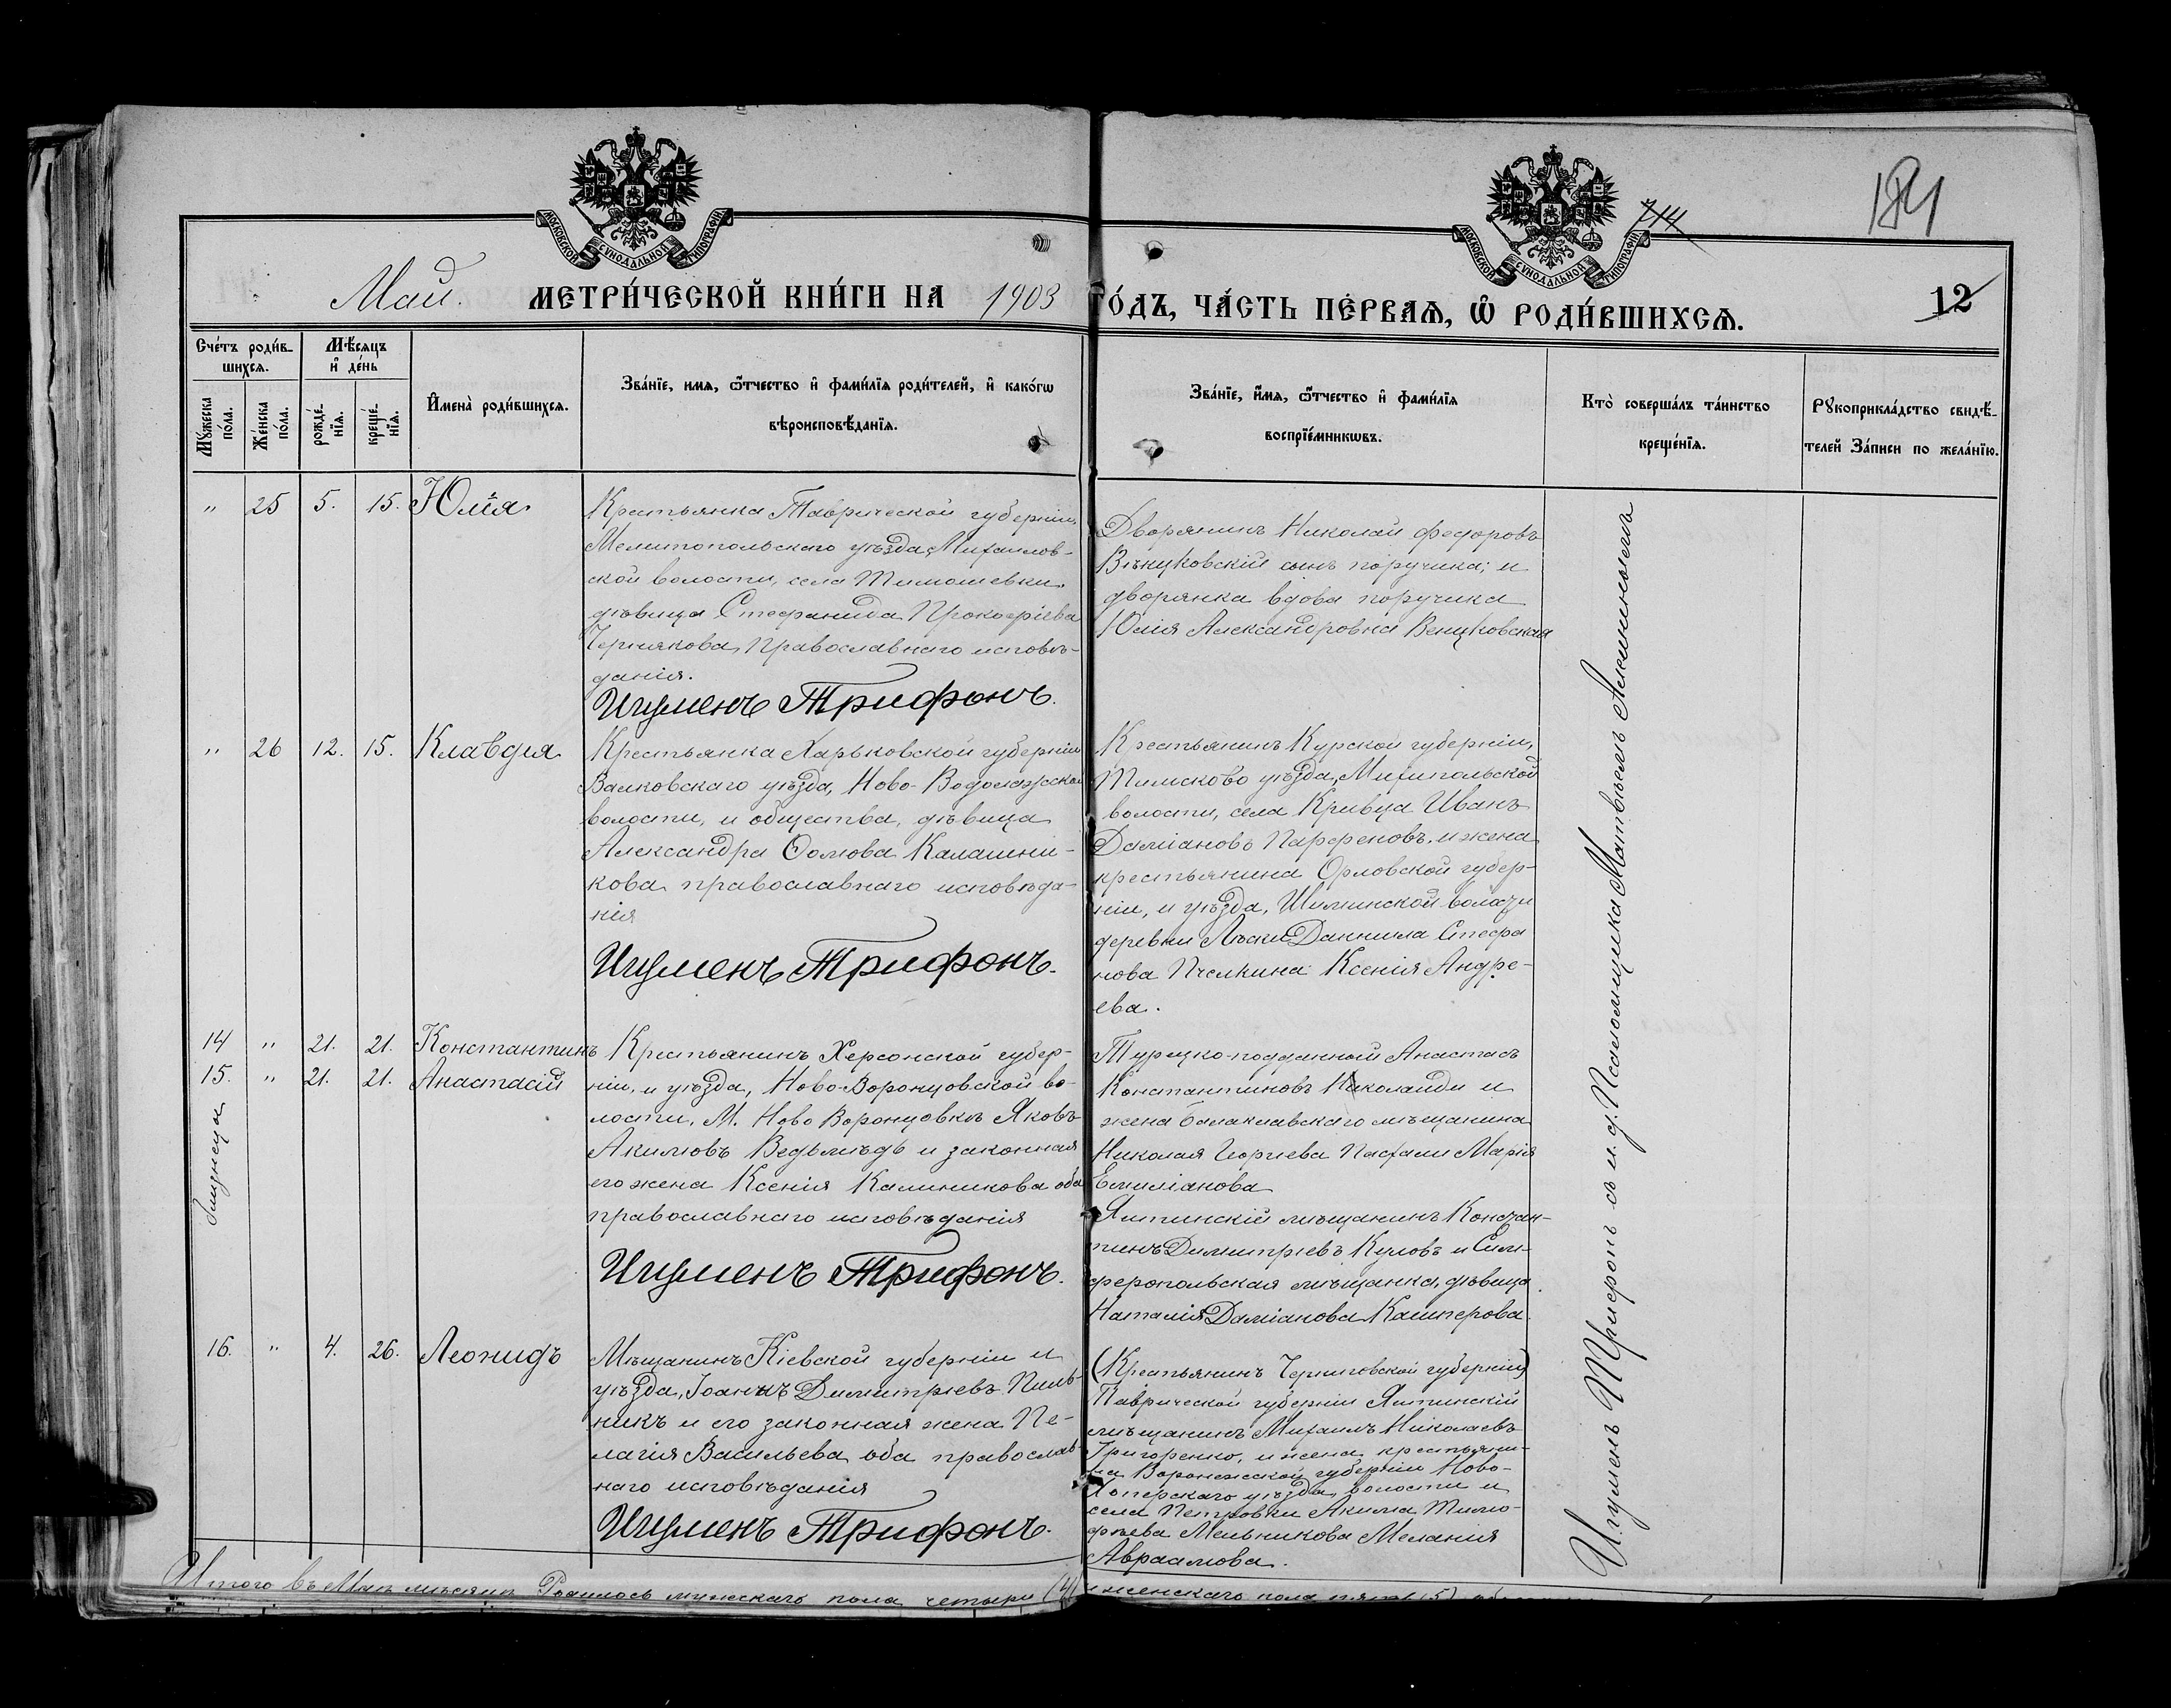 МОСКОВСКОЙ СѴНОДАЛЬНОЙ ТИПОГРАФІИ
МОСКОВСКОЙ СѴНОДАЛЬНОЙ ТИПОГРАФІИ
714
184
Май.
МЕТРИ́ЧЕСКОЙ КНИ́ГИ НА 1903 ГО́ДЪ, ЧА́СТЬ ПЕ́РВАѦ, Ѡ҆ РОДИ́ВШИХСѦ.
12
Сче́тъ роди́в-
шихсѧ.
Мꙋ́жеска по́ла.
Же́нска по́ла.
Мѣ́сяцъ
и҆ де́нь
рожде́-
нїѧ.
креще́-
нїѧ.
И҆мена̀ роди́вшихсѧ.
Зва́нїе, имѧ, ѻ҆́тчество и҆ фами́лїѧ роди́телей, и҆ како́гѡ
вѣроисповѣ́данїѧ.
Зва́нїе, и҆́мѧ, ѻ҆́тчество и҆ фами́лїѧ
воспрїе́мникѡвъ.
Кто̀ соверша́лъ та́инство
креще́нїѧ.
Рꙋкоприкла́дство свидѣ́-
телей За́писи по жела́нїю.
" 25 5. 15. Юлія.
Крестьянка Таврической губерніи,
Мелитопольскаго уѣзда, Михайлов-
ской волости, села Тимошевки
дѣвица Стефанида Прокофіева
Чернякова, Православнаго исповѣ-
данія.
Игуменъ Трифонъ.
Дворянинъ Николай Федоровъ
Вѣнцковскій сынъ поручика; и
дворянка вдова поручика
Юлія Александровна Венцковская
" 26 12. 15. Клавдія
Крестьянка Харьковской губерніи
Валковскаго уѣзда, Ново-Водолажской
волости, и общества, дѣвица
Александра Ѳомова Калашни-
кова православнаго исповѣда-
нія
Игуменъ Трифонъ.
Крестьянинъ Курской губерніи,
Тимсково уѣзда,
волости, села Кривца Иванъ
Даміановъ Парфеновъ. и жена
крестьянина Орловской губер-
ніи, и уѣзда,
деревни Даніила Стефа
нова Пчелкина Ксенія Андре-
ева.
14 " 21. 21. Константинъ
15. " 21. 21. Анастасій
близнецы
Крестьянинъ Херсонской губер-
ніи, и уѣзда, Ново-Воронцовской во-
лости, М. Ново Воронцовкѣ Яковъ
Акимовъ Ведьмѣдь и законная
его жена Ксенія Калиникова оба
православнаго исповѣданія
Игуменъ Трифонъ.
Турецко-подданный Анастасъ
Константиновъ Николаиди и
жена балаклавскаго мѣщанина
Николая Георгіева Пасхали Марія
Емиліанова
Ялтинскій мѣщанинъ Констан-
тинъ Димитріевъ Куловъ и Сим-
феропольская мѣщанка, дѣвица
Наталія Даміанова Кашперова.
16. " 4. 26. Леонидъ
Мѣщанинъ Кіевской губерніи и
уѣзда, Іоаннъ Димитріевъ Пиль-
никъ и его законная жена Пе-
лагія Васильева, оба православ-
наго исповѣданія
Игуменъ Трифонъ.
(Крестьянинъ Черниговской губерніи)
Таврической губерніи Ялтинскій
мѣщанинъ Михаилъ Николаевъ
Григоренко, и жена крестьяни-
на Воронежской губерніи Ново-
Хоперскаго уѣзда, волости и
села Петровки Акима Тимо-
фѣева Мельникова Меланія
Авраамова.
Игуменъ Трифонъ съ и. д. Псаломщика Матвѣемъ
Итого въ Маѣ мѣсяцѣ Родилось мужскаго пола четыре (4) женскаго пола пять (5)